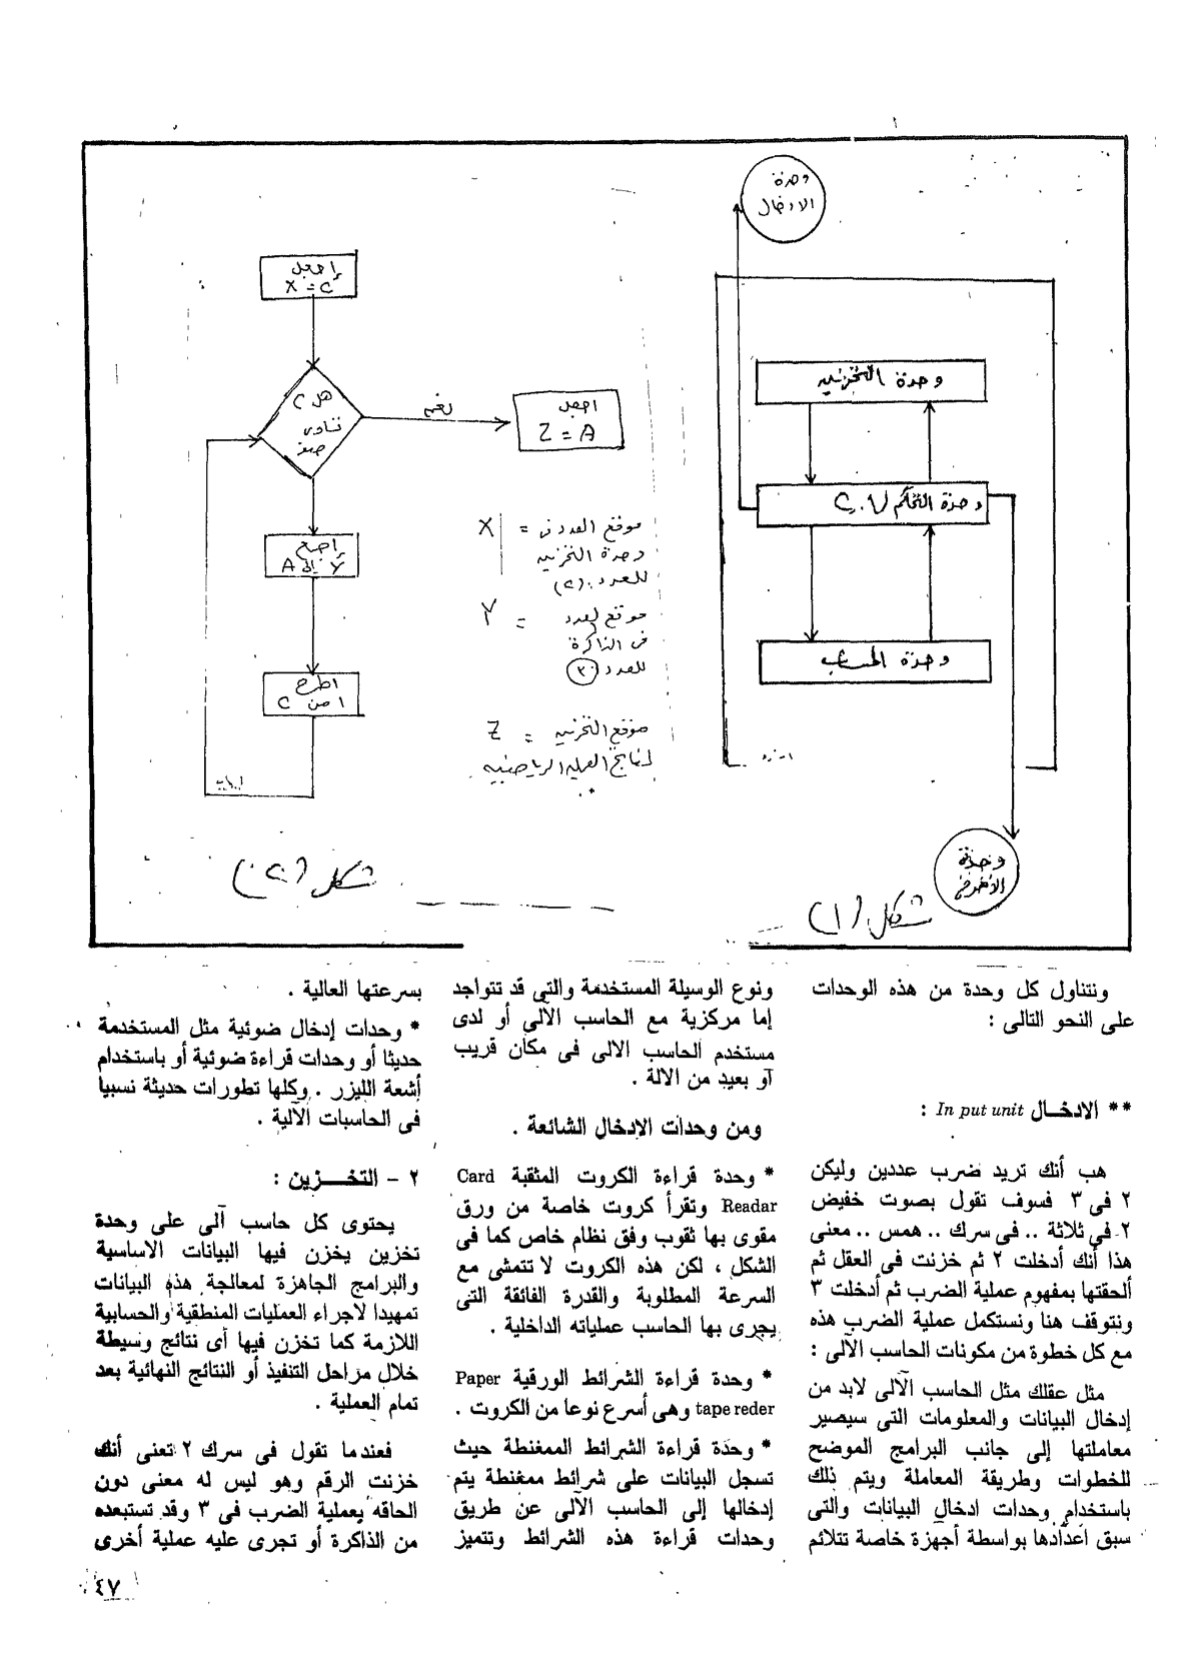 وحدة
الادخال
وحدة التخزين
وحدة التحكم C.U
وحدة الحساب
وحدة
الاخراج
شكل (١)
إجعل
X = C
هل C
تساوى
صفر
نعم
اجعل
Z = A
إجمع
Y إلى A
اطرح
١ من C
X = موقع العدد فى
وحدة التخزين
للعدد (٢)
Y = موقع العدد
فى الذاكرة
للعدد (٣)
Z = موقع التخزين
لناتج العمليه الرياضيه
شكل (٢)
ونتناول كل وحدة من هذه الوحدات
على النحو التالى :
** الادخـال In put unit :
هب أنك تريد ضرب عددين وليكن
٢ فى ٣ فسوف تقول بصوت خفيض
٢ فى ثلاثة .. فى سرك .. همس .. معنى
هذا أنك أدخلت ٢ ثم خزنت فى العقل ثم
ألحقتها بمفهوم عملية الضرب ثم أدخلت ٣
ونتوقف هنا ونستكمل عملية الضرب هذه
مع كل خطوة من مكونات الحاسب الآلى :
مثل عقلك مثل الحاسب الآلى لابد من
إدخال البيانات والمعلومات التى سيصير
معاملتها إلى جانب البرامج الموضح
للخطوات وطريقة المعاملة ويتم ذلك
باستخدام وحدات ادخال البيانات والتى
سبق اعدادها بواسطة أجهزة خاصة تتلائم
ونوع الوسيلة المستخدمة والتى قد تتواجد
إما مركزية مع الحاسب الآلى أو لدى
مستخدم الحاسب الالى فى مكان قريب
أو بعيد من الالة .
ومن وحدات الإدخال الشائعة .
* وحدة قراءة الكروت المثقبة Card
Readar وتقرأ كروت خاصة من ورق
مقوى بها ثقوب وفق نظام خاص كما فى
الشكل ، لكن هذه الكروت لا تتمشى مع
السرعة المطلوبة والقدرة الفائقة التى
يجرى بها الحاسب عملياته الداخلية .
* وحدة قراءة الشرائط الورقية Paper
tape reder وهى أسرع نوعا من الكروت .
* وحدة قراءة الشرائط الممغنطة حيث
تسجل البيانات على شرائط ممغنطة يتم
إدخالها إلى الحاسب الآلى عن طريق
وحدات قراءة هذه الشرائط وتتميز
بسرعتها العالية .
* وحدات إدخال ضوئية مثل المستخدمة
حديثا أو وحدات قراءة ضوئية أو باستخدام
أشعة الليزر . وكلها تطورات حديثة نسبيا
فى الحاسبات الآلية .
٢ - التخـــزين :
يحتوى كل حاسب آلى على وحدة
تخزين يخزن فيها البيانات الاساسية
والبرامج الجاهزة لمعالجة هذه البيانات
تمهيدا لاجراء العمليات المنطقية والحسابية
اللازمة كما تخزن فيها أى نتائج وسيطة
خلال مراحل التنفيذ أو النتائج النهائية بعد
تمام العملية .
فعندما تقول فى سرك ٢ تعنى أنك
خزنت الرقم وهو ليس له معنى دون
الحاقه بعملية الضرب فى ٣ وقد تستبعده
من الذاكرة أو تجرى عليه عملية أخرى
٤٧